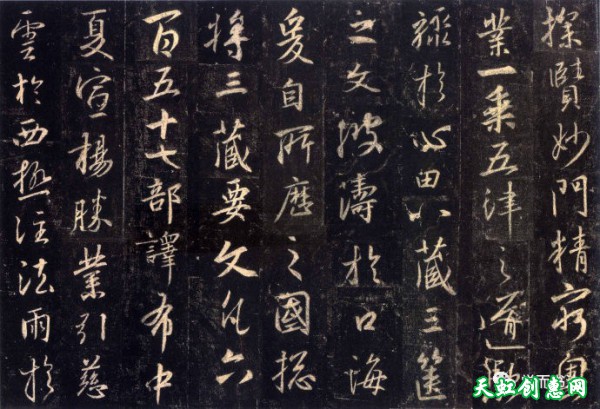 探賾妙門精窮奧
業一乘五律之道馳
驟於心田八藏三篋
之文波濤於口海
爰自所歷之國總
將三藏要文凡六
百五十七部譯布中
夏宣揚勝業引慈
雲於西極注法雨於
天虹创意网